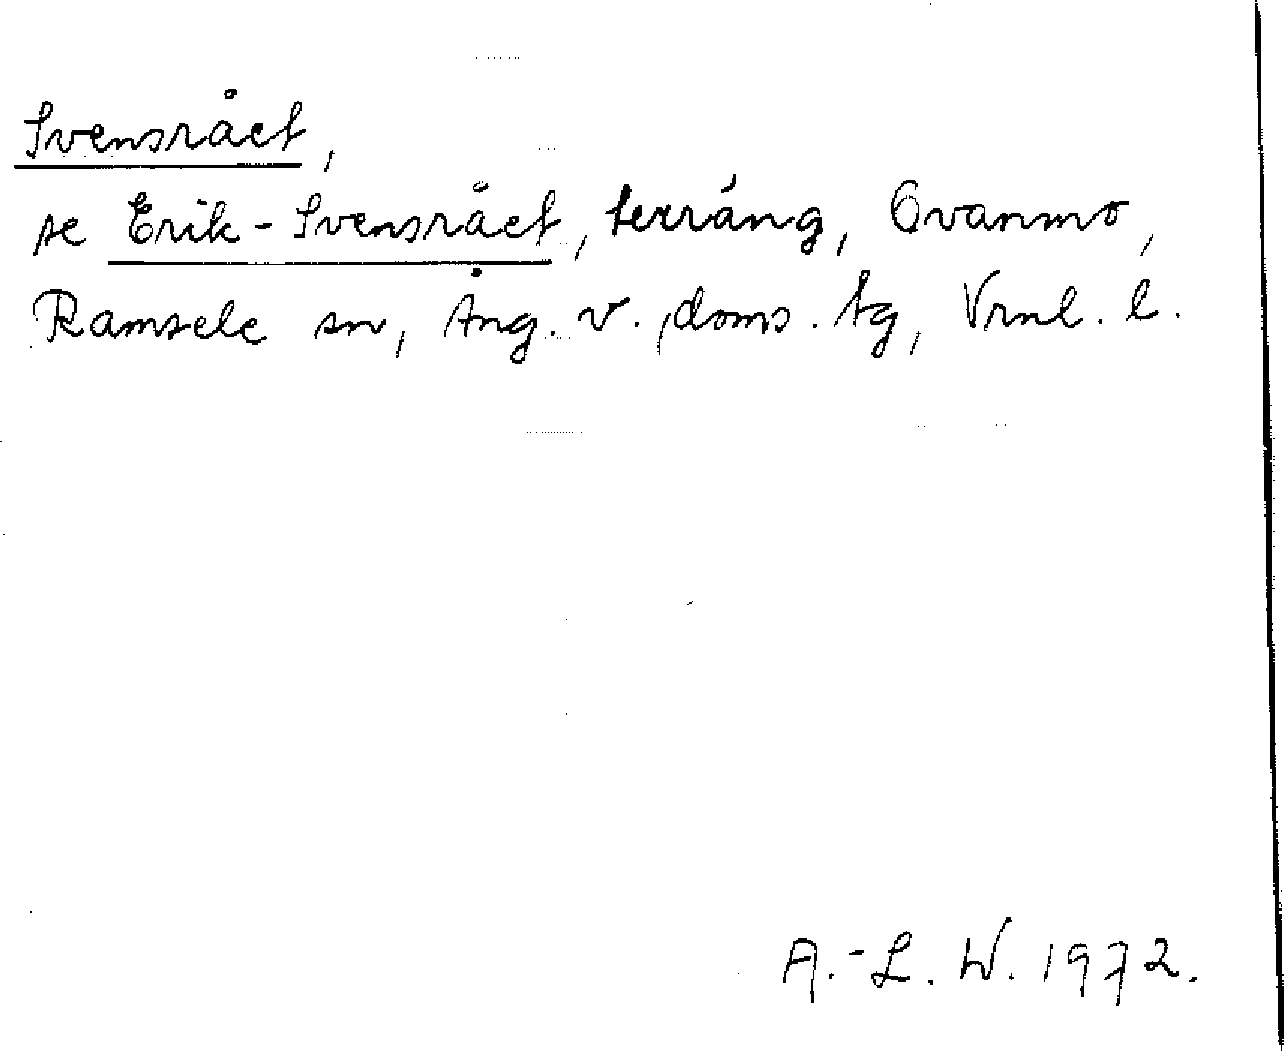 Svensrået,
se Erik-Svensrået, terräng, Ovanmo,
Ramsele sn, Ång. v. doms. tg, Vrnl. l.
A.-L. W. 1972.